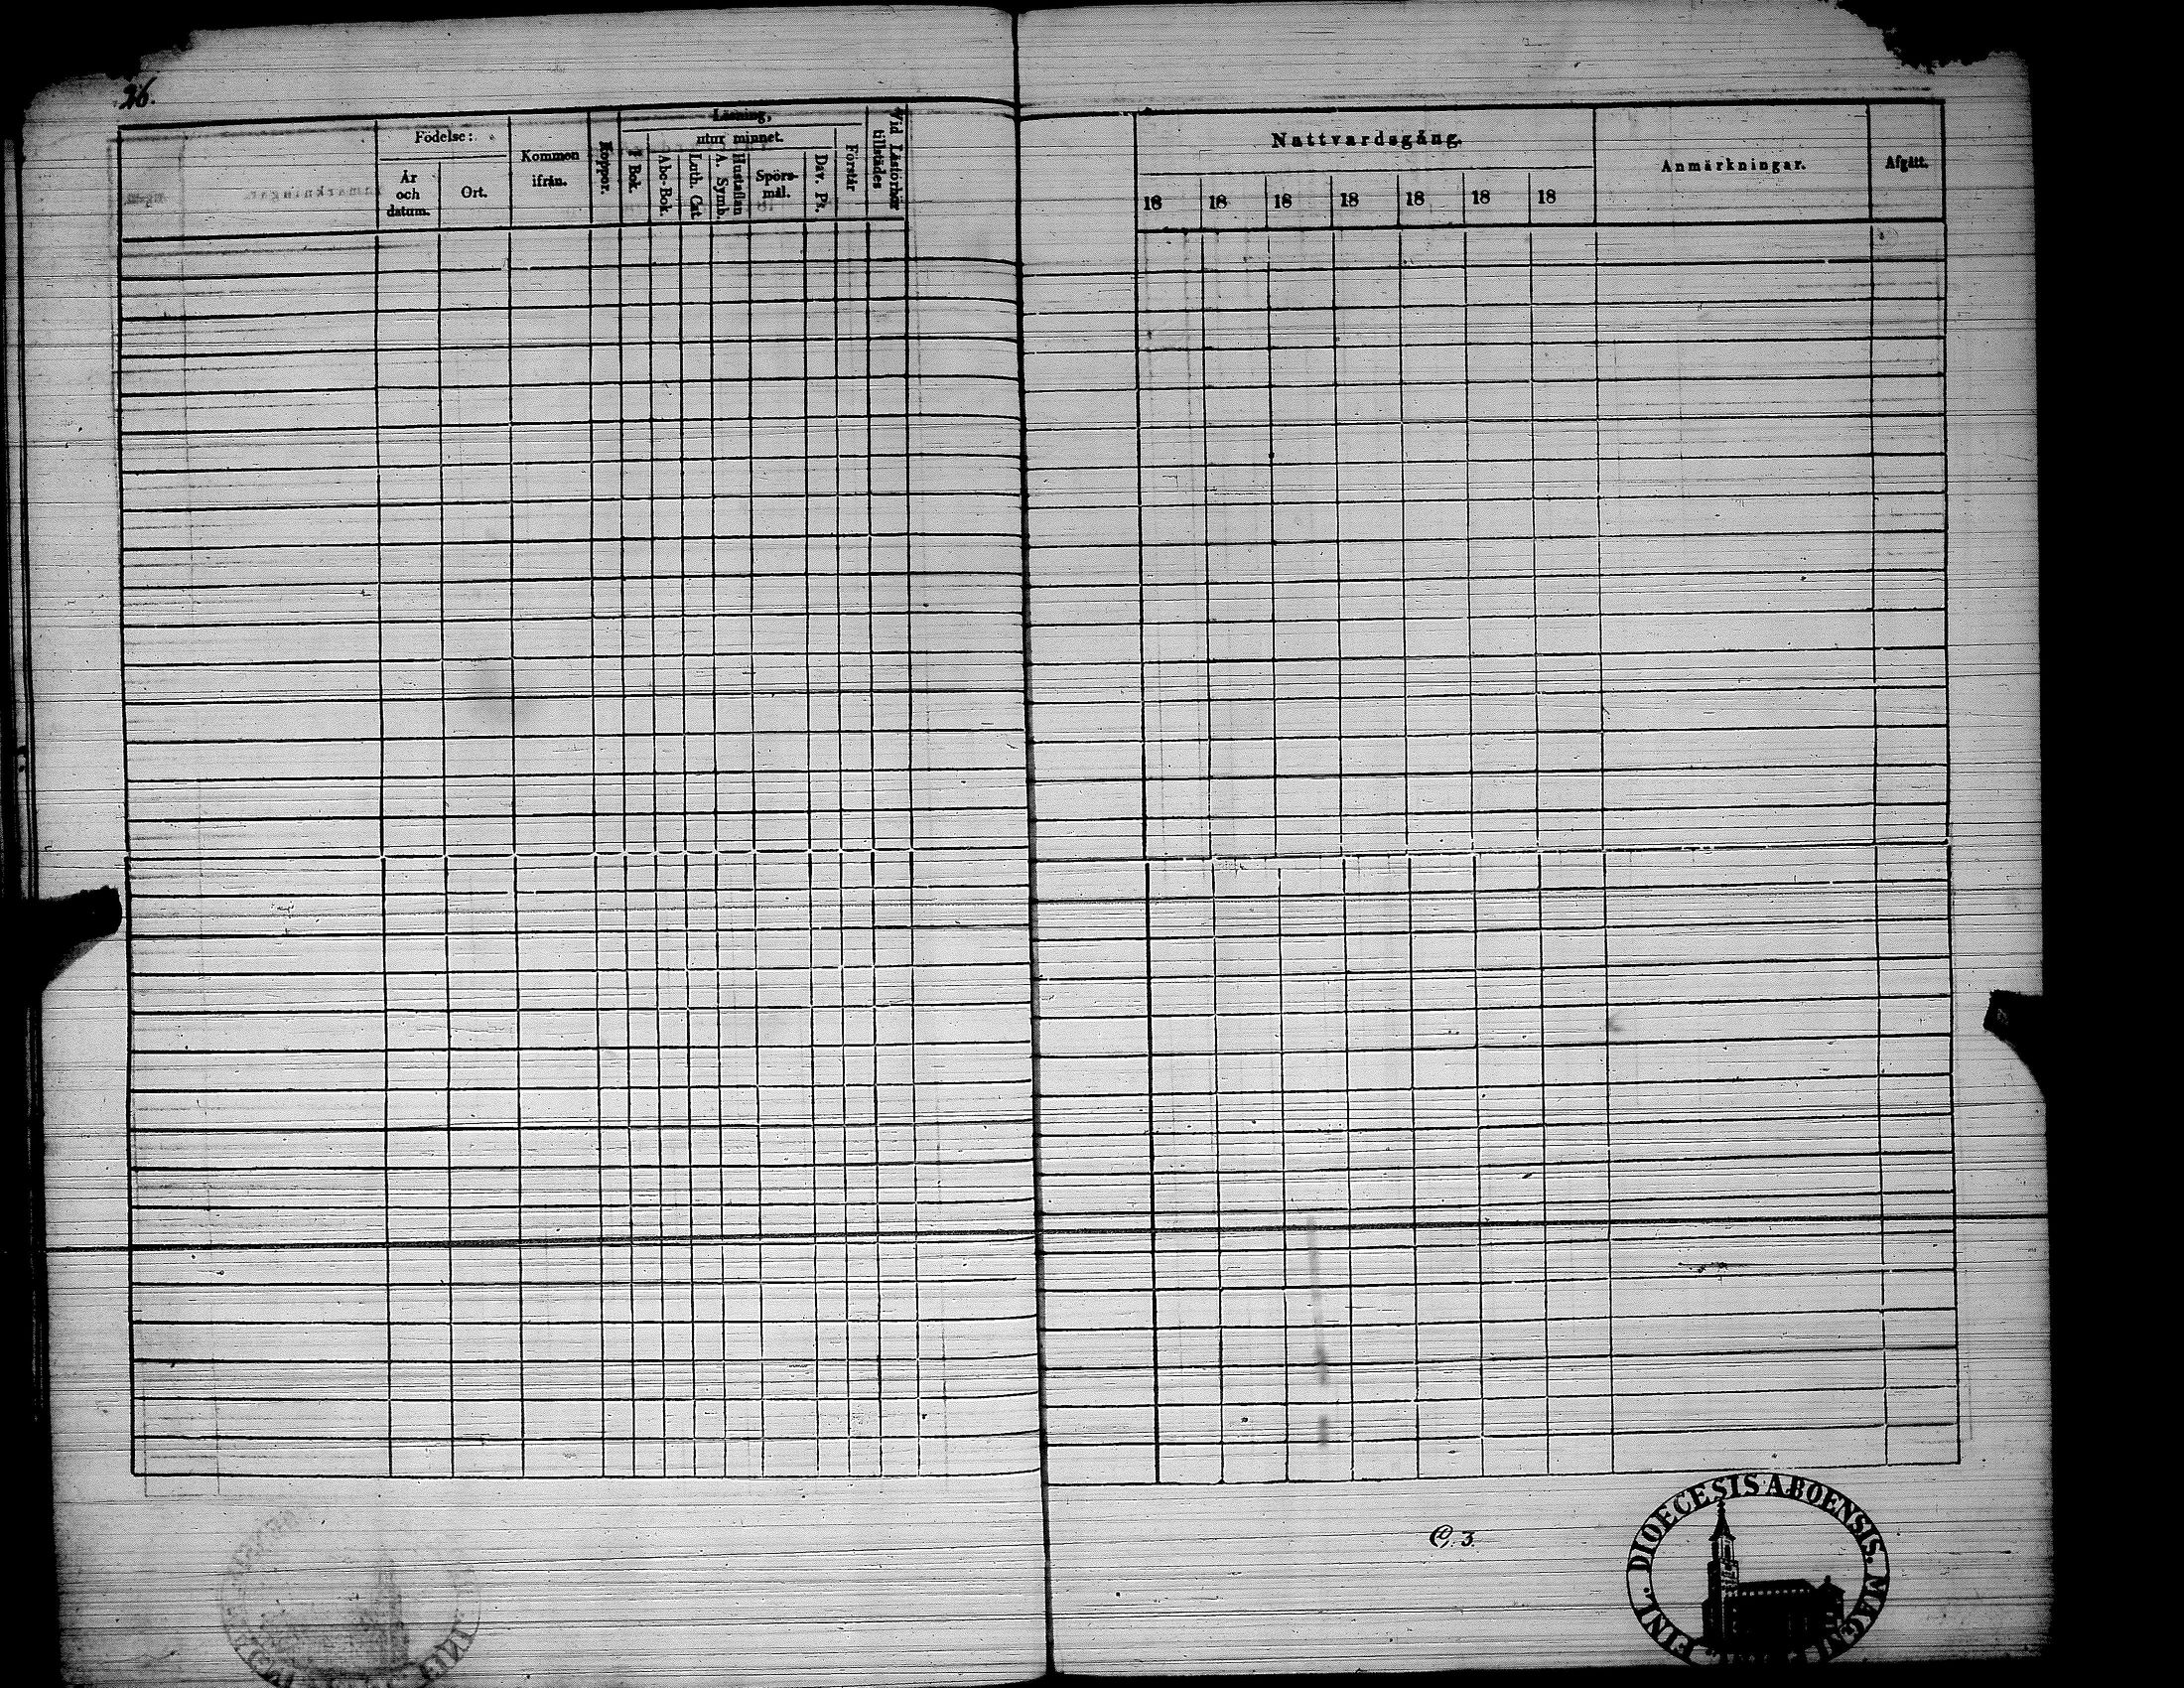 26.
Födelse:
År och datum.
Ort.
Kommen ifrån.
Koppor.
Läsning,
utur minnet.
I Bok.
Abc-Bok.
Luth. Cat.
A. Symb.
Hustaflan
Spörsmål.
Dav. Ps.
Förstår
Vid Läsförhör tillstädes
Nattvardsgång.
18 18 18 18 18 18 18
Anmärkningar.
Afgått.
C. 3.
DIOECESIS ABOENSIS. MAGNI
FINL.